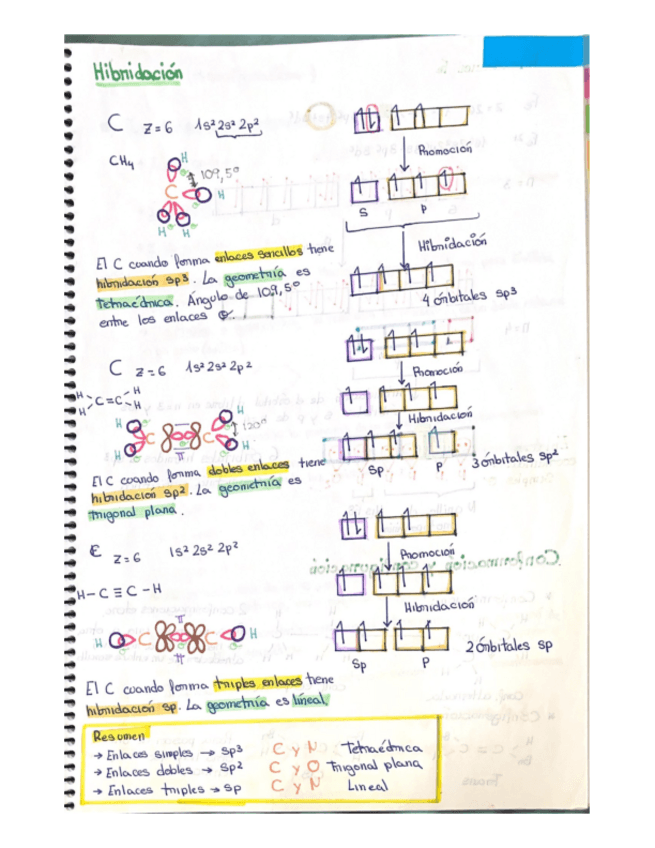 Hibridación
C Z=6 1s² 2s² 2p²
Promoción
CH₄
H
109,5º
H
H H
S P
Hibridación
El C cuando forma enlaces sencillos tiene
hibridación sp³. La geometría es
Tetraédrica. Ángulo de 109,5º
entre los enlaces
4 órbitales sp³
C Z=6 1s² 2s² 2p²
Promoción
H H
C=C
H H
Hibridación
H H
120º
C C
π
H H
Sp P 3 órbitales sp²
El C cuando forma dobles enlaces tiene
hibridación sp². La geometría es
trigonal plana.
C Z=6 1s² 2s² 2p²
Promoción
H-C≡C-H
Hibridación
π
H C C H
π
2 órbitales sp
Sp P
El C cuando forma triples enlaces tiene
hibridación sp. La geometría es líneal.
Resumen
→ Enlaces simples → Sp³ C y N Tetraédrica
→ Enlaces dobles → Sp² C y O Trigonal plana
→ Enlaces triples → Sp C y N Lineal